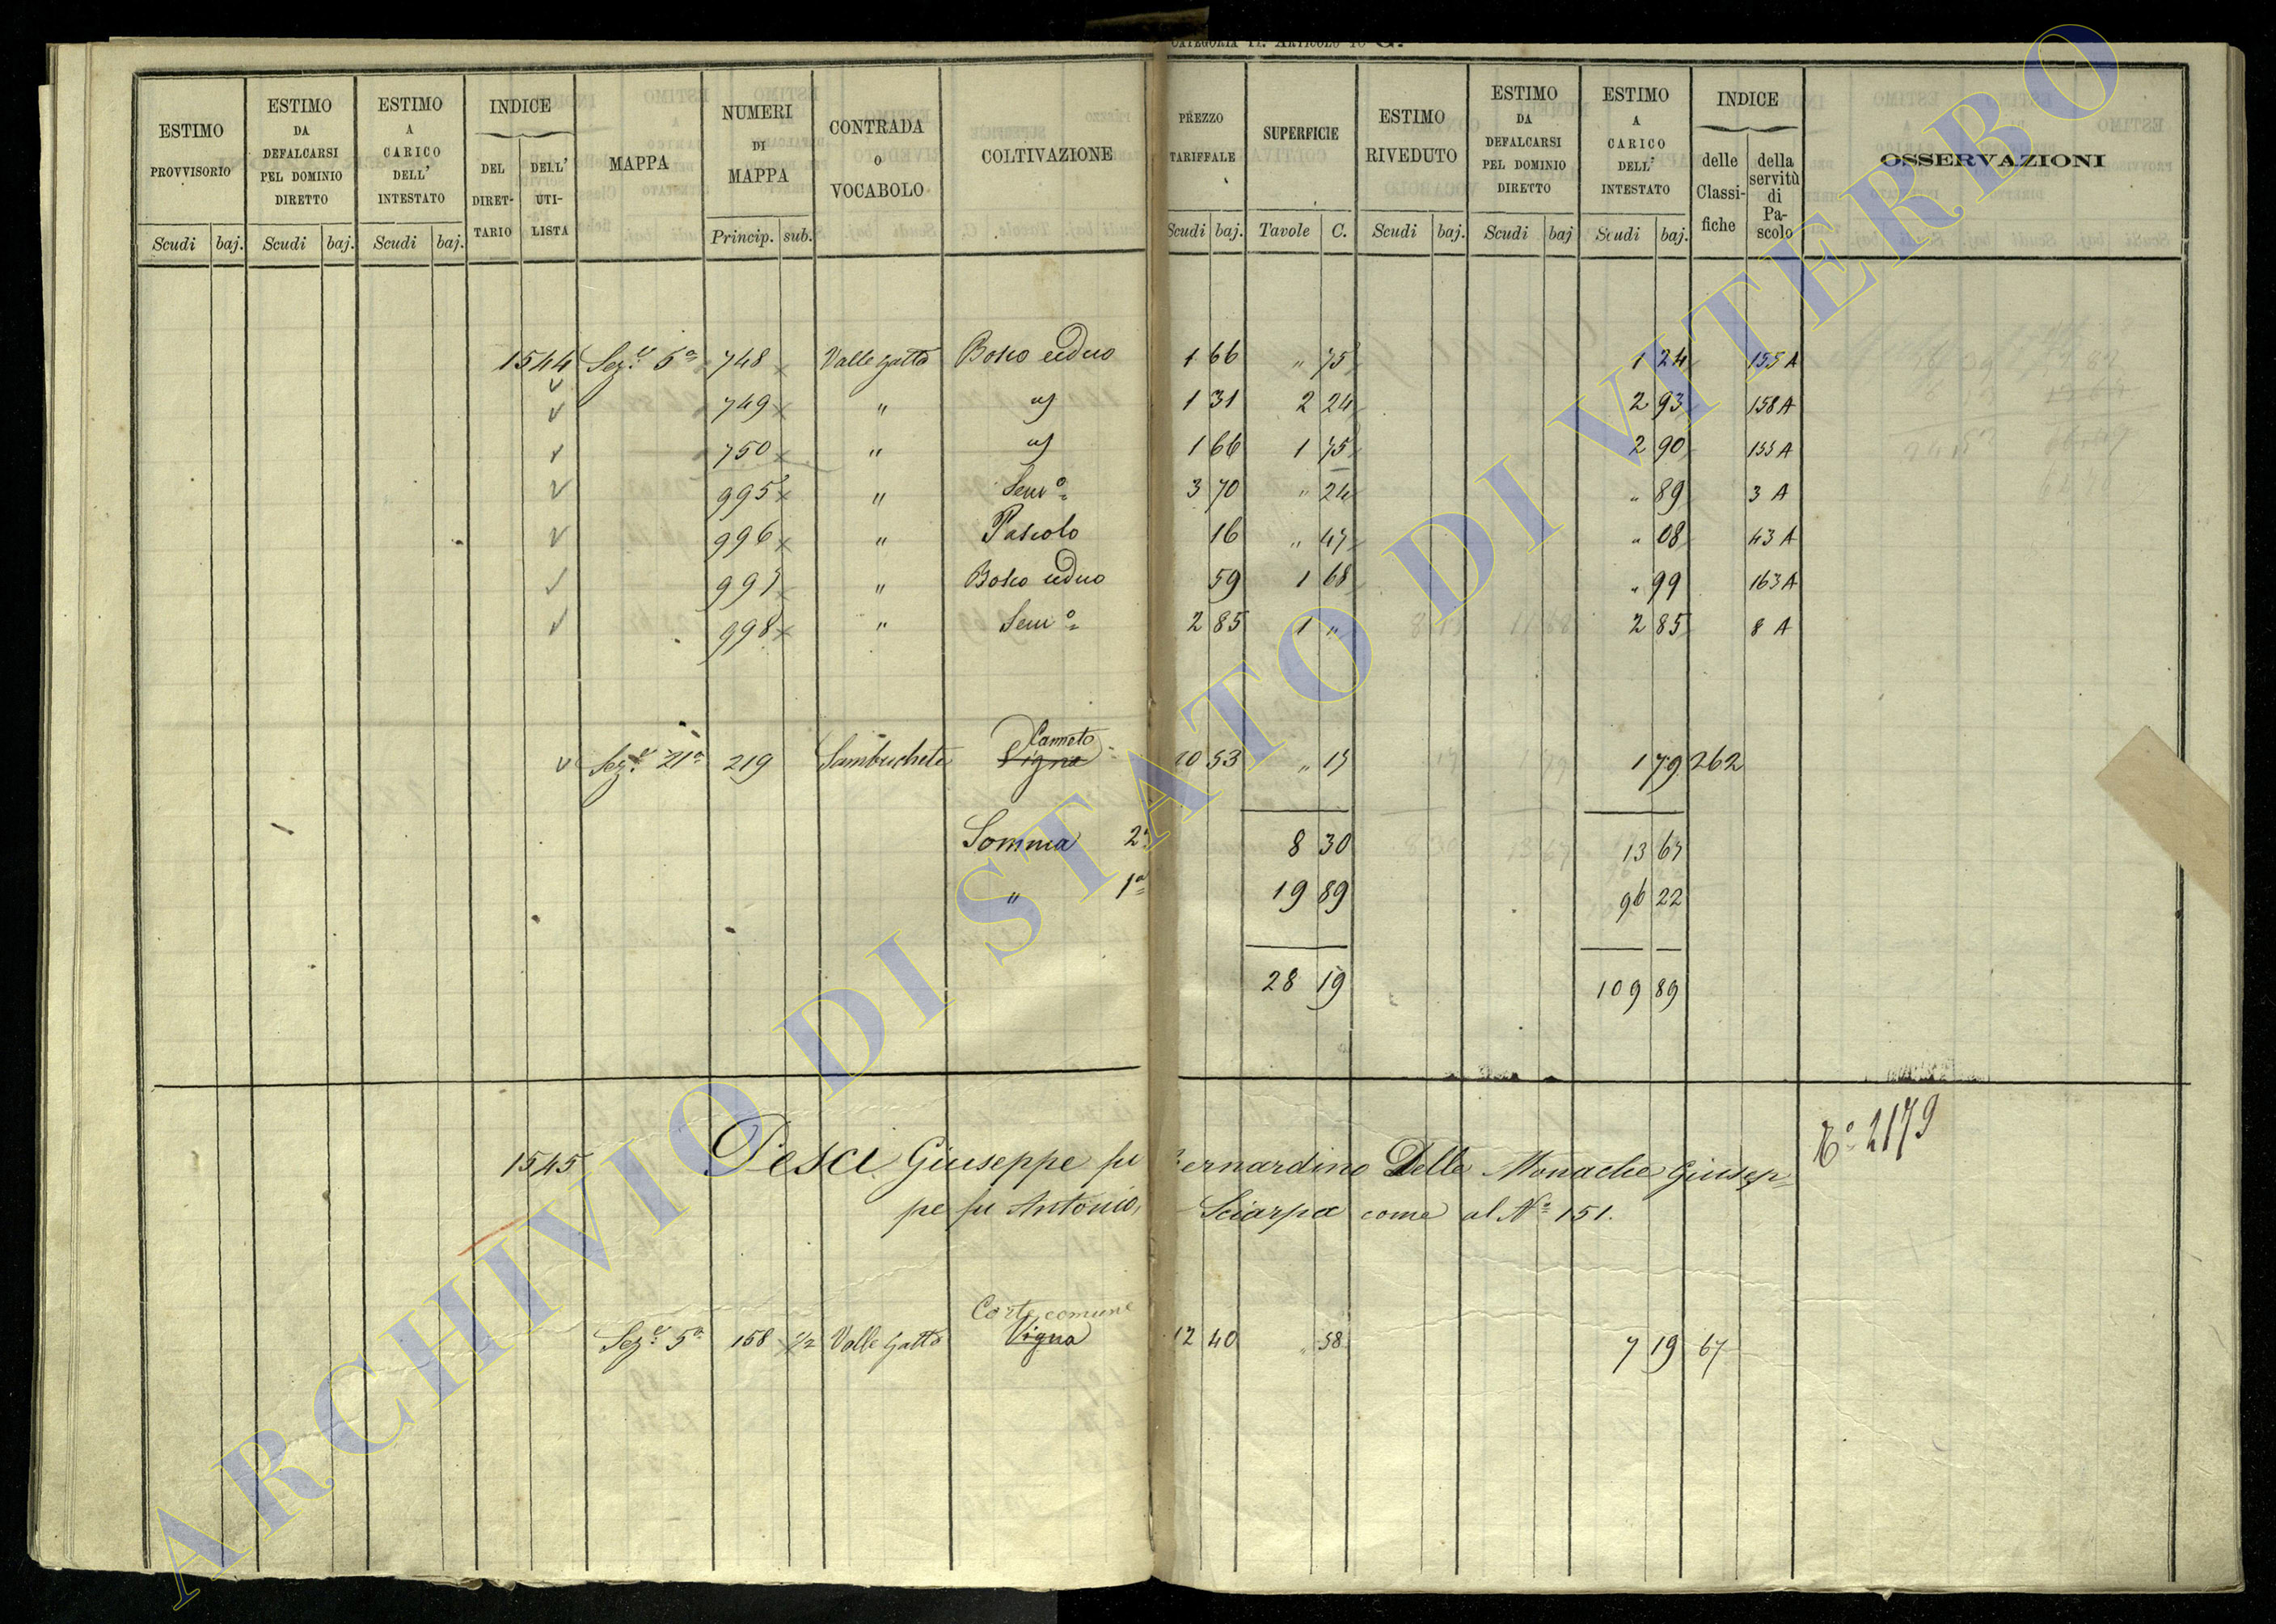 CATEGORIA II. ARTICOLO 10 G.
ESTIMO PROVVISORIO Scudi baj.
ESTIMO DA DEFALCARSI PEL DOMINIO DIRETTO Scudi baj.
ESTIMO A CARICO DELL' INTESTATO Scudi baj.
INDICE DEL DIRET-TARIO DELL' UTI-LISTA
MAPPA
NUMERI DI MAPPA Princip. sub.
CONTRADA O VOCABOLO
COLTIVAZIONE
PREZZO TARIFFALE Scudi baj.
SUPERFICIE Tavole C.
ESTIMO RIVEDUTO Scudi baj.
ESTIMO DA DEFALCARSI PEL DOMINIO DIRETTO Scudi baj
ESTIMO A CARICO DELL' INTESTATO Scudi baj.
INDICE delle Classi-fiche della servitù di Pa-scolo
OSSERVAZIONI
1544 Sez.e 5a 748 x Valle gatto Bosco ceduo 1 66 " 75 1 24 155 A
749 x " id 1 31 2 24 2 93 158 A
750 x " id 1 66 1 75 2 90 155 A
995 x " Sem.o 3 70 " 24 " 89 3 A
996 x " Pascolo 16 " 47 " 08 43 A
997 x " Bosco ceduo 59 1 68 " 99 163 A
998 x " Sem.o 2 85 1 " 2 85 8 A
Canneto
Sez.e 21a 219 Sambuchete Vigna 10 53 " 17 1 79 262
Somma 2a 8 30 13 67
" 1a 19 89 96 22
28 19 109 89
1545 Pesci Giuseppe fu Bernardino Delle Monache Giusep-
pe fu Antonio, Sciarpa come al No 151.
No 2179
Corte comune
Sez.e 5a 158 1/2 Valle gatto Vigna 12 40 " 58 7 19 67
ARCHIVIO DI STATO DI VITERBO